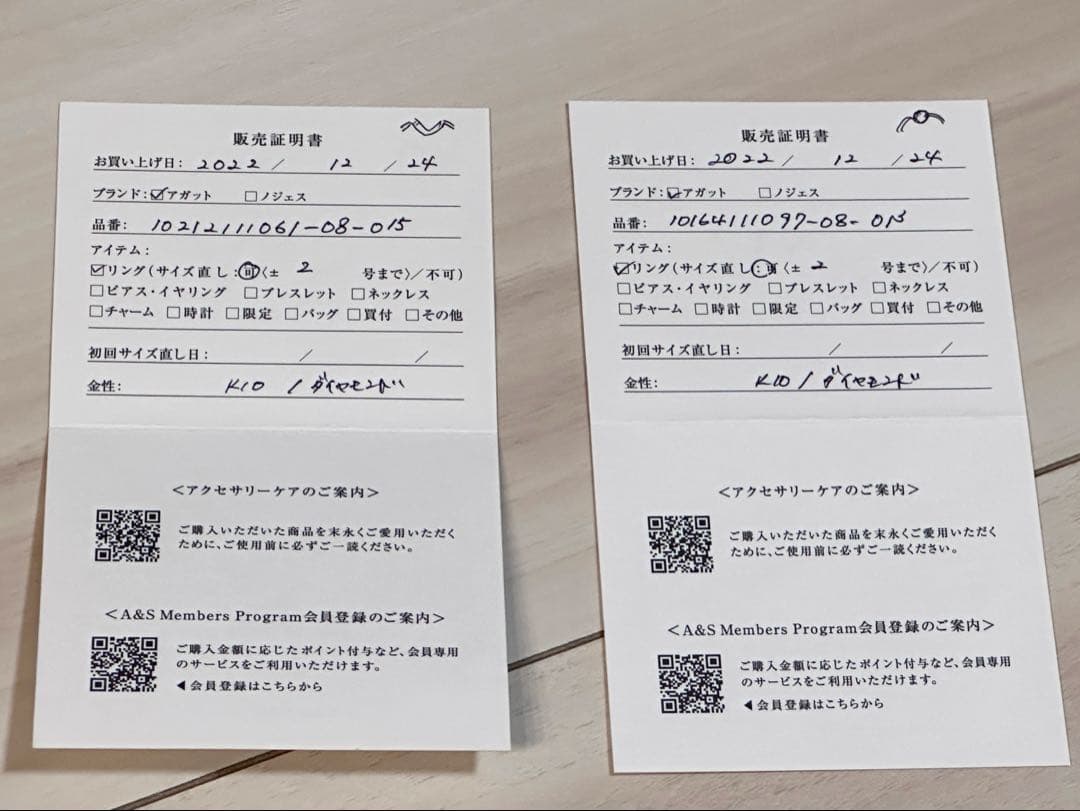 販売証明書
お買い上げ日: 2022 / 12 / 24
ブランド: ☑アガット □ノジェス
品番: 10212111061-08-015
アイテム:
☑リング(サイズ直し:可〈± 2 号まで〉/不可)
□ピアス・イヤリング □ブレスレット □ネックレス
□チャーム □時計 □限定 □バッグ □買付 □その他
初回サイズ直し日: / /
金性: K10 / ダイヤモンド
<アクセサリーケアのご案内>
ご購入いただいた商品を末永くご愛用いただく
ために、ご使用前に必ずご一読ください。
<A&S Members Program会員登録のご案内>
ご購入金額に応じたポイント付与など、会員専用
のサービスをご利用いただけます。
◀会員登録はこちらから
販売証明書
お買い上げ日: 2022 / 12 / 24
ブランド: ☑アガット □ノジェス
品番: 10164111097-08-
アイテム:
☑リング(サイズ直し:可〈± 2 号まで〉/不可)
□ピアス・イヤリング □ブレスレット □ネックレス
□チャーム □時計 □限定 □バッグ □買付 □その他
初回サイズ直し日: / /
金性: K10 / ダイヤモンド
<アクセサリーケアのご案内>
ご購入いただいた商品を末永くご愛用いただく
ために、ご使用前に必ずご一読ください。
<A&S Members Program会員登録のご案内>
ご購入金額に応じたポイント付与など、会員専用
のサービスをご利用いただけます。
◀会員登録はこちらから